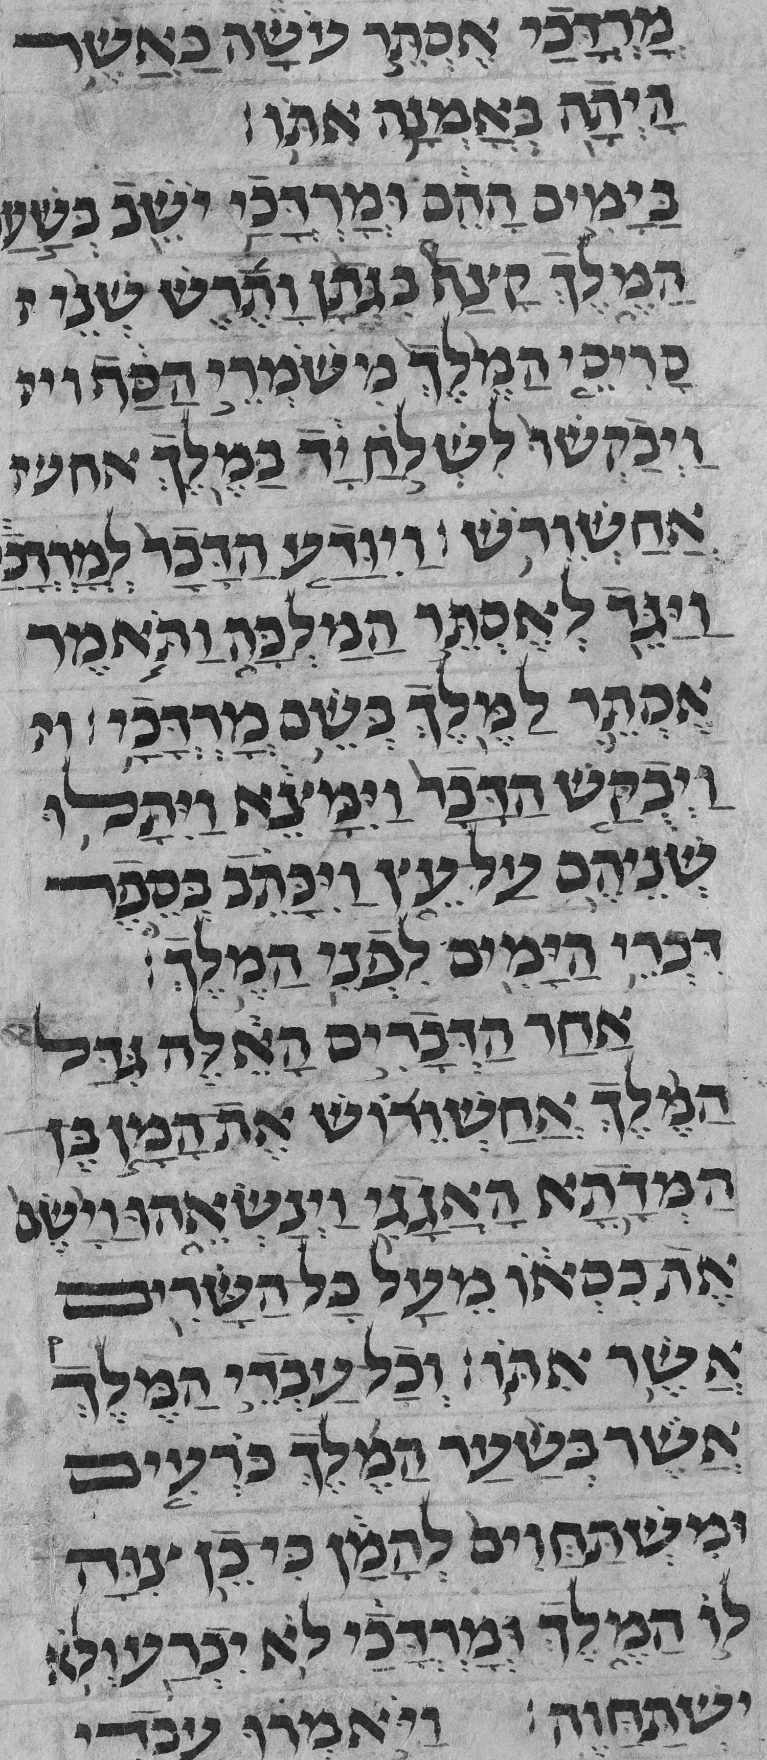 מָרְדֳּכַי אֶסְתֵּר עֹשָׂה כַּאֲשֶׁר
הָיְתָה בְאָמְנָה אִתּוֹ׃
בַּיָּמִים הָהֵם וּמָרְדֳּכַי יֹשֵׁב בְּשַׁעַ
הַמֶּלֶךְ קָצַף בִּגְתָן וָתֶרֶשׁ שְׁנֵי י
סָרִיסֵי הַמֶּלֶךְ מִשֹּׁמְרֵי הַסַּף ויי
וַיְבַקְשׁוּ לִשְׁלֹחַ יָד בַּמֶּלֶךְ אחשי
אֲחַשְׁוֵרֹשׁ׃ וַיִּוָּדַע הַדָּבָר לְמָרְדֳּכַ
וַיַּגֵּד לְאֶסְתֵּר הַמַּלְכָּה וַתֹּאמֶר
אֶסְתֵּר לַמֶּלֶךְ בְּשֵׁם מָרְדֳּכָי׃ וי
וַיְבֻקַּשׁ הַדָּבָר וַיִּמָּצֵא וַיִּתָּלוּ
שְׁנֵיהֶם עַל עֵץ וַיִּכָּתֵב בְּסֵפֶר
דִּבְרֵי הַיָּמִים לִפְנֵי הַמֶּלֶךְ׃
אַחַר הַדְּבָרִים הָאֵלֶּה גִּדַּל
הַמֶּלֶךְ אֲחַשְׁוֵרוֹשׁ אֶת הָמָן בֶּן
הַמְּדָתָא הָאֲגָגִי וַיְנַשְּׂאֵהוּ וַיָּשֶׂם
אֶת כִּסְאוֹ מֵעַל כָּל הַשָּׂרִים
אֲשֶׁר אִתּוֹ׃ וְכָל עַבְדֵי הַמֶּלֶךְ
אֲשֶׁר בְּשַׁעַר הַמֶּלֶךְ כֹּרְעִים
וּמִשְׁתַּחֲוִים לְהָמָן כִּי כֵן צִוָּה
לוֹ הַמֶּלֶךְ וּמָרְדֳּכַי לֹא יִכְרַע וְלֹא
יִשְׁתַּחֲוֶה׃ וַיֹּאמְרוּ עַבְדֵי